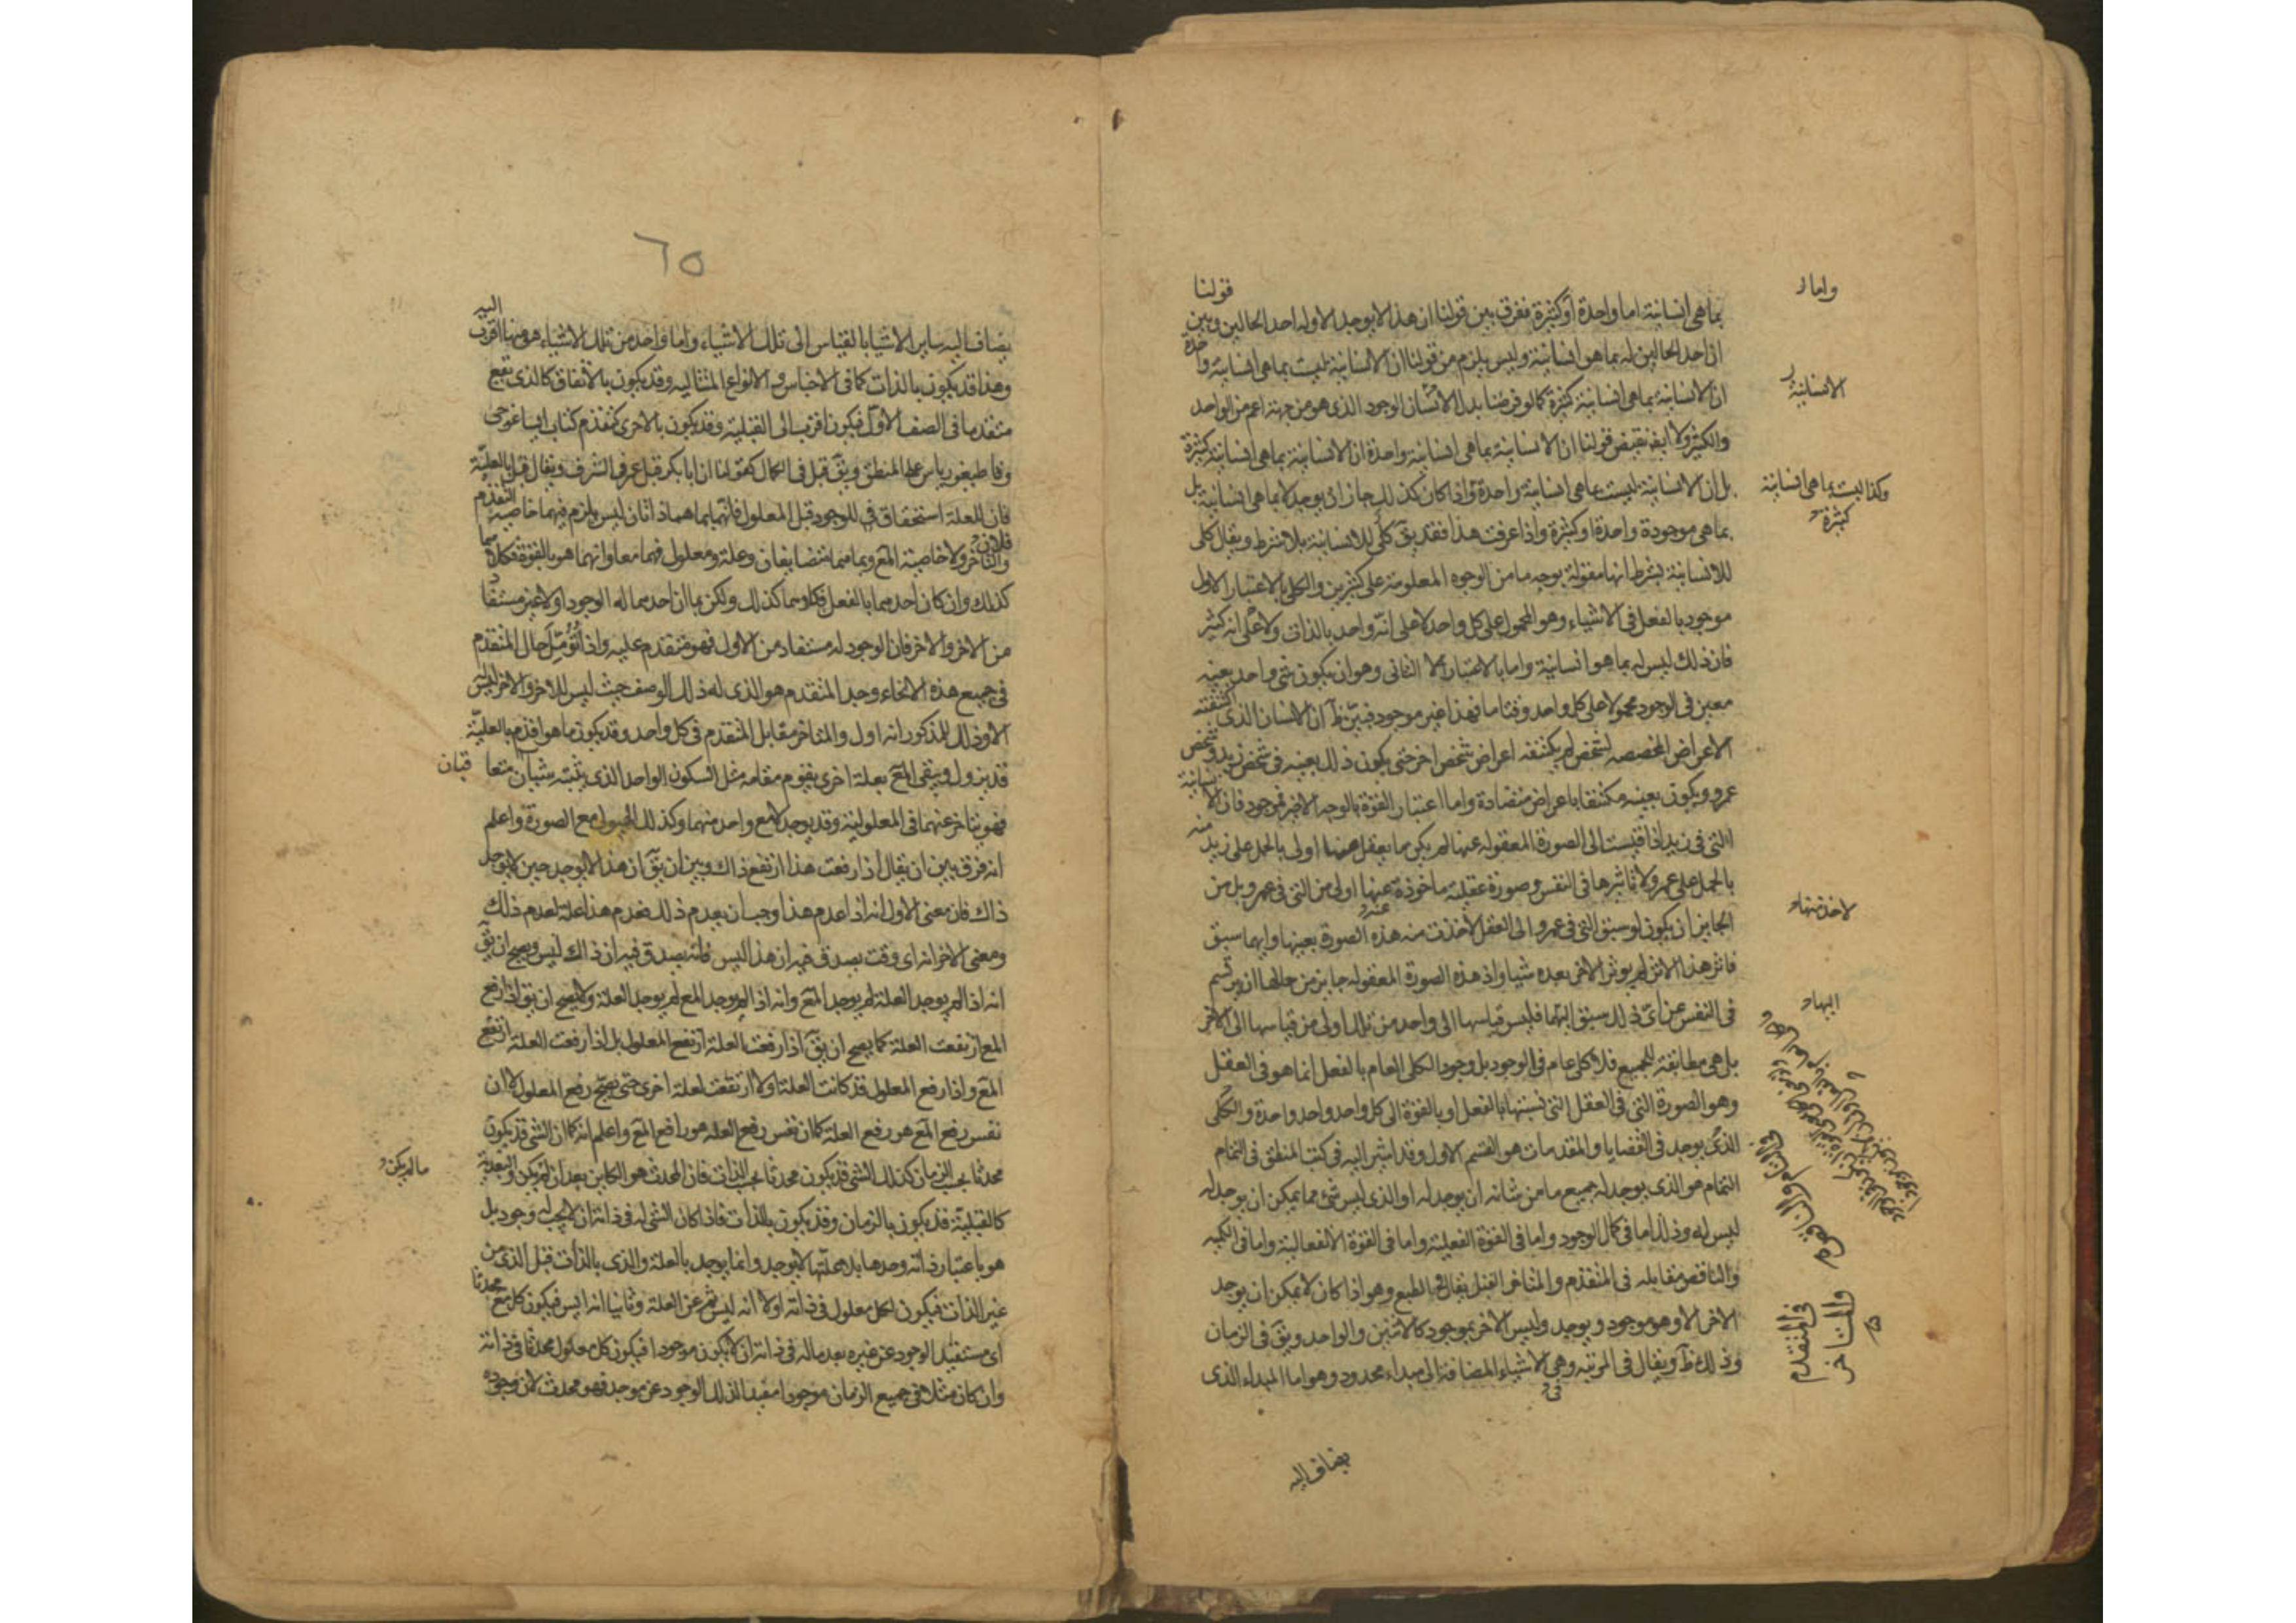 قولنا
بما هي انسانية اما واحدة أو كثيرة ففرق بين قولنا ان هذا لا يوجد الا وله احد الحالين وبين
ان احد الحالين له بما هو انسانية وليس يلزم من قولنا ان الانسانية ليست بما هي انسانية واحدة
ان الانسانية بما هي انسانية كثيرة كما لو فرضنا بدل الانسان الوجود الذي هو من جهة اعم من الواحد
والكثير ولا ايض نقيض قولنا ان الانسانية بما هي انسانية واحدة ان الانسانية بما هي انسانية كثيرة
بل ان الانسانية ليست بما هي انسانية واحدة واذا كان كذلك جاز ان يوجد لا بما هي انسانية بل
بما هي موجودة واحدة او كثيرة واذا عرفت هذا فقد يق كلي للانسانية بلا شرط ويقال كلي
للانسانية بشرط انها مقولة بوجه ما من الوجوه المعلومة على كثيرين والكلي بالاعتبار الاول
موجود بالفعل في الاشياء وهو المحمول على كل واحد لا على انه واحد بالذات ولا على انه كثير
فان ذلك ليس له بما هو انسانية واما بالاعتبار الثاني وهو ان يكون شئ واحد بعينه
معين في الوجود محمولا على كل واحد وقتا ما فهذا غير موجود فبين ظ ان الانسان الذي اكتنفته
الاعراض المخصصه لشخص لم يكتنفه اعراض شخص اخر حتى يكون ذلك بعينه في شخص زيد وشخص
عمرو ويكون بعينه مكتنفا باعراض متضادة واما اعتبار القوة بالوجه الاخر فموجود فان الانسانية
التي في زيد اذا قيست الى الصورة المعقوله عنها لم يكن ما يعقل منها اولى بالحمل على زيد منه
بالحمل على عمرو ولا تاثيرها في النفس صورة عقلية ماخوذة عنها اولى من التي في عمرو بل من
الجايز ان يكون لو سبق التي في عمرو الى العقل لأخذت منه هذه الصورة بعينها وايهما سبق
فاثر هذا الاثر لم يوثر الاخر بعده شيا واذ هذه الصورة المعقوله جايز من حالها ان يرتسم
في النفس عن اي ذلك سبق اليها فليس قياسها الى واحد من تلك اولى من قياسها الى الاخر
بل هي مطابقة للجميع فلا كلي عام في الوجود بل وجود الكلي العام بالفعل انما هو في العقل
وهو الصورة التي في العقل التي نسبتها بالفعل او بالقوة الى كل واحد واحد واحدة والكلي
الذي يوجد في القضايا والمقدمات هو القسم الاول وقد اشير اليه في كتب المنطق في التمام
التمام هو الذي يوجد له جميع ما من شانه ان يوجد له او الذي ليس شئ مما يمكن ان يوجد له
ليس له وذلك اما في كمال الوجود واما في القوة الفعلية واما في القوة الانفعالية واما في الكميه
والناقص مقابله في المتقدم والمتاخر القبل يقال في الطبع وهو اذا كان لا يمكن ان يوجد
الاخر الا وهو موجود ويوجد وليس الاخر بموجود كالاثنين والواحد ويق في الزمان
وذلك ظ ويقال في المرتبه وهي الاشياء المضافة الى مبداء محدود وهو اما المبداء الذي
يضاف اليه
واما
الانسانية
وكذا ليست بما هي انسانية
كثيرة
لاخذ منها
اليها
في التام والناقص
في المتقدم
والمتاخر
٦٥
يضاف اليه ساير الاشيا بالقياس الى تلك الاشياء واما واحد من تلك الاشياء هو منها اقرب اليه
وهذا قد يكون بالذات كما في الاجناس والانواع المتتاليه وقد يكون بالاتفاق كالذي يقع
متقدما في الصف الاول فيكون اقرب الى القبلية وقد يكون بالاحرى كتقدم كتاب ايساغوجى
وقاطيغورياس على المنطق ويق قبل في الكمال كقولنا ان ابا بكر قبل عمر في الشرف ويقال قبل بالعلية
فان للعلة استحقاق في للوجود قبل المعلول فانهما بما هما ذاتان ليس يلزم فيهما خاصية التقدم
والتاخر ولا خاصية المع وبما هما متضايفان وعلة ومعلول فهما معا وانهما هو بالقوة فكلاهما
كذلك وان كان احدهما بالفعل فكلاهما كذلك ولكن بما ان احدهما له الوجود اولا غير مستفاد
من الاخر والاخر فان الوجود له مستفاد من الاول فهو متقدم عليه واذا تؤمل حال المتقدم
في جميع هذه الانحاء وجد المتقدم هو الذي له ذلك الوصف حيث ليس للاخر والاخر ليس
الا وذلك للمذكور انه اول والمتاخر مقابل المتقدم في كل واحد وقد يكون ما هو اقدم بالعلية
قد يزول ويبقى المع بعلة اخرى يقوم مقامه مثل السكون الواحد الذي يثبته شيان متعا
قبان
فهو يتاخر عنهما في المعلولية وقد يوجد لا مع واحد منهما وكذلك الهيولى مع الصورة واعلم
انه فرق بين ان يقال اذا رفعت هذا ارتفع ذاك وبين ان يق ان هذا لا يوجد حين لا يوجد
ذاك فان معنى الاول انه اذا عدم هذا وجب ان يعدم ذلك فعدم هذا علة لعدم ذلك
ومعنى الاخر انه اي وقت يصدق فيه ان هذا ليس فانه يصدق فيه ان ذاك ليس ويصح ان يق
انه اذا لم يوجد العلة لم يوجد المع وانه اذا لم يوجد المع لم يوجد العلة ولا يصح ان يق اذا رفع
المع ارتفعت العلة كما يصح ان يق اذا رفعت العلة ارتفع المعلول بل اذا رفعت العلة ارتفع
المع واذا رفع المعلول قد كانت العلة اولا ارتفعت لعلة اخرى حتى يصح رفع المعلول لا ان
نفس رفع المع هو رفع العلة كما ان نفس رفع العله هو رافع المع واعلم انه كما ان الشى قد يكون
محدثا بحسب الزمان كذلك الشى قد يكون محدثا بحسب الذات فان المحدث هو الكاين بعد ان لم يكن والبعدية
ما لم يكن
كالقبلية قد يكون بالزمان وقد يكون بالذات فاذا كان الشى له في ذاته ان لا يجب له وجود بل
هو باعتبار ذاته وحدها بلا علتها لا يوجد وانما يوجد بالعلة والذي بالذات قبل الذي من
غير الذات فيكون لكل معلول في ذاته اولا انه ليس ثم عن العلة وثانيا انه ايس فيكون كل مع محدثا
اى مستفيد الوجود عن غيره بعد ماله في ذاته ان لا يكون موجودا فيكون كل معلول محدثا في ذاته
وان كان مثلا في جميع الزمان موجودا مفيدا لذلك الوجود عن موجد فهو محدث لان وجوده